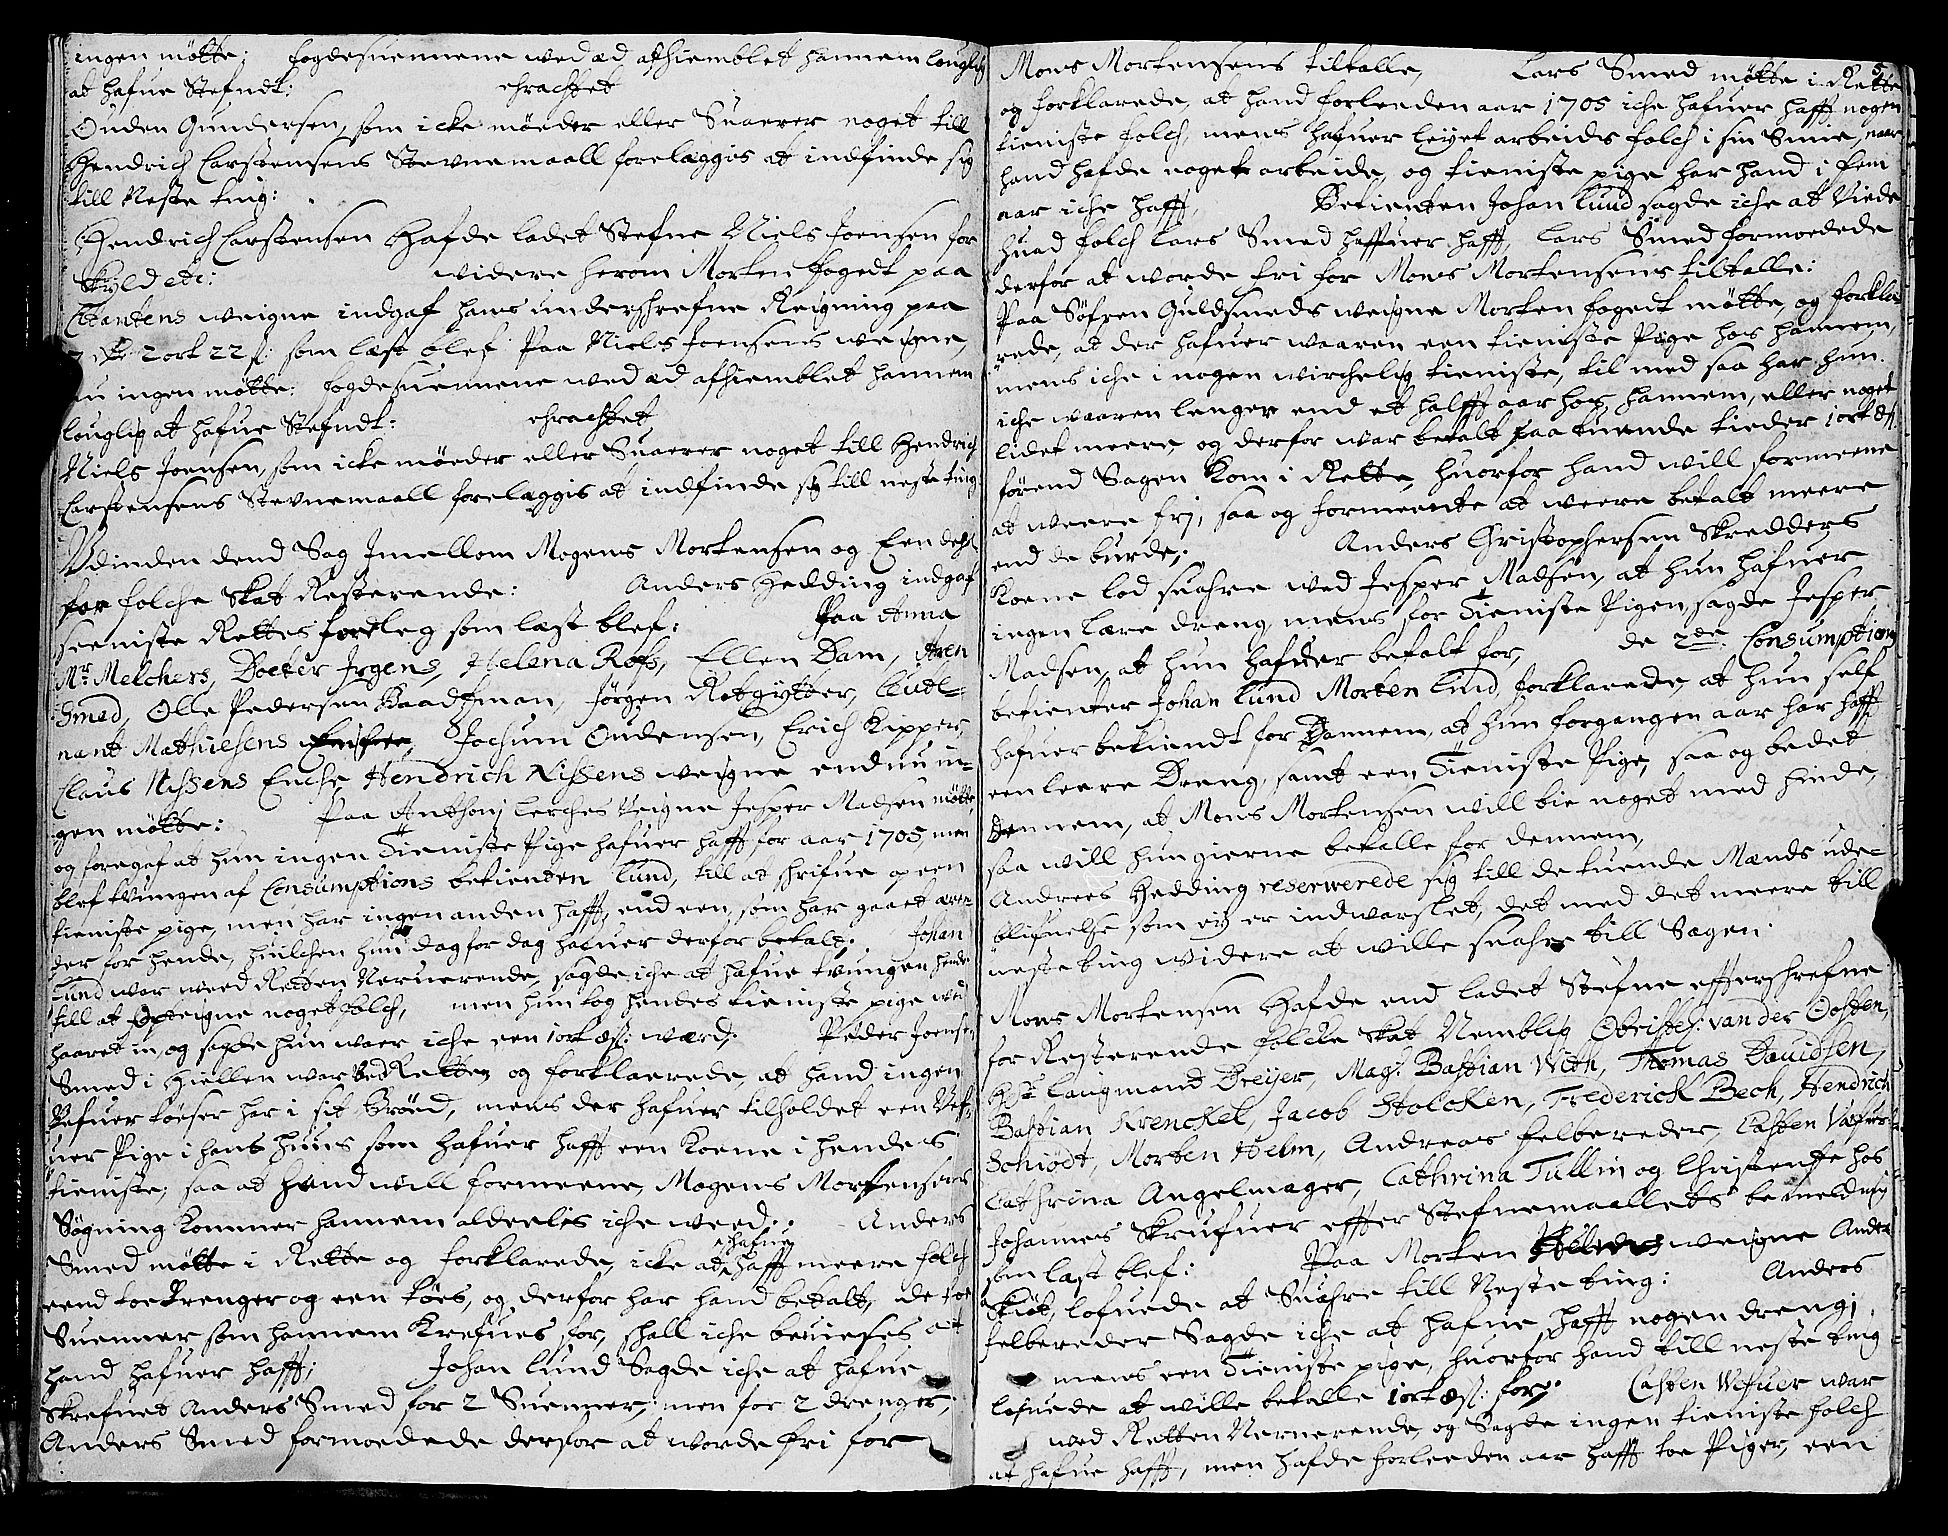 ingen møtte; fogdesuennene wed æd afhiemblet hannem louglig
at hafue Stefndt: ehracktet
Ouden Gundersen, som icke møeder eller Suarer noget till
Hendrich Carstensens Stevnemaall forelæggis at indfinde sig
till Neste ting:
Hendrich Carstensen Hafde ladet Stefne Niels Joensen for
Skyld etc: widere herom Morten fogedt paa
Citantens weigne indgaf hans underschrefne Reigning paa
2 ort 22 s: som læst blef. Paa Niels Joensens weigne,
nu ingen møtte: fogdesuennene wed æd afhiemblet hannem
louglig at hafue Stefndt: ehracktet
Niels Joensen, som icke møeder eller Suarer noget till Hendrich
Carstensens Stevnemaall forelæggis at indfinde sig till neste ting
Udinden dend Sag Imellom Mogens Mortensen og Een dehl
for folche Skat Resterende: Anders Hedding indgaf
seeniste Rettes forelleg som læst blef: Paa Anna
Mr. Melchers, Docter Jrgens, Helena Rofs, Ellen Dam, Aren
Smed, Olle Pedersen Baadtman, Jørgen Rotgytter, Leutl=
nant Mathiesens Jochum Oudensen, Erich Kipper,
Claus Nissens Enche, Hendrich Nissens weigne endnu in=
gen møtte: Paa Anthonj Lerches Veigne Jesper Madsen møtte,
og foregaf at hun ingen Tieniste Pige hafuer hafft for aar 1705, men
blef tvungen af Consumptions betienten Lund, till at schrifue op een
tieniste pige, men har ingen anden hafft, end een, som har gaaet æren
der for hende, huilchen hun dag for dag hafuer derfor betalt; Johan
Lund war weed Retten Neruerende, sagde iche at hafue tvungen hende
till at Opteigne noget folch, men hun tog hendes tieniste pige wed
haaret in, og sagde hun waer iche een 1 ort værd; Peder Joensen
Smed i Hiellen war ved Retten og forklaerede, at hand ingen
Vefuer tøeser har i sit brøed, mens der hafuer tilholdet een Vef=
uer Pige i hans huus som hafuer hafft een Koene i hendes
tieniste; saa at hand will formeene, Mogens Mortensens
Søgning kommer hannem aldeelis iche weed; Anders
Smed møtte i Rette og forklarede, icke at hafue hafft meere folch
eend toe drenger og een tøes, og derfor har hand betalt, de toe
Suenner som hannem Krefues for, schall iche beuieses at
hand hafuer hafft; Johan Lund Sagde iche at hafue
Skrefuet Anders Smed for 2 Suenner, men for 2 drenger,
Anders Smed formoedede derfor at worde fri for
5
Mons Mortensens tiltalle, Lars Smed møtte i Rette
og forklarede, at hand forleeden aar 1705 iche hafuer hafft nogen
tieniste folch, mens hafuer leyet arbeids folch i sin Smie, naar
hand hafde noget arbeide, og tieniste pige har hand i fem
aar iche hafft, Betienten Johan Lund sagde iche at Viede
huad folch Lars Smed haffuer hafft, Lars Smed formoedede
derfor at worde fri for Mons Mortensens tiltalle:
Paa Søfren Guldsmeds weigne Morten fogedt møtte, og forkla
rede, at der hafuer waaren een tieniste Pige hos hannem,
mens iche i nogen wirchelig tieniste, til med saa har hun
iche waaren lenger end et halfft aar hos hannem, eller noget
lidet meere, og derfor war betalt paa tuende tieder 1 ort
førend Sagen kom i Rette, huorfor hand will formeene
at weere frj, saa og formeente at weere betalt meere
end de burde; Anders Christophersen Skredders
Koene lod suahre wed Jesper Madsen, at hun hafuer
ingen lære dreng, mens for Tieniste Pigen, sagde Jesper
Madsen, at hun hafuer betalt for, de 2de Consumptions
betienter Johan Lund Morten Lind, forklarede, at hun self
hafuer bekiendt for Dannem, at hun forgangen aar har hafft
een leere Dreng, samt een Tieniste Pige, saa og bedet
Dennem, at Mons Mortensen will bie noget med hinde,
saa will hun gierne betalle for dennem,
Andrees Hedding reserwerede sig till de tuende Mands ude=
blifuelse som eij er indwarslet, det med det meere till
neste ting widere at wille suahre till Sagen.
Mons Mortensen Hafde end ladet Stefne efterschrefne
for Resterende folche Skat Nemblig Obriste: van der Oosten,
Hr: Laugmand Dreyer, Magr. Bastian With, Thomas Dauidsen,
Bastian Krenckel, Jacob Stolcken, Frederick Bech, Hendrich
Schiødt, Morten Helm, Andreas felbereder, Casten Vefuer
Cathrina Angelmager, Cathrina Tullin og Christense hos
Johannes Skrufuer effter Stefnemaallets bemelding
som læst blef: Paa Morten weigne Anders
Skiøt, lofuede at Suahre till Neste ting: Anders
felbereder Sagde iche at hafue hafft nogen dreng,
mens een Tieniste pige, huorfor hand till neste ting
lofuede at wille betalle 1 ort for; Casten Wefuer war
wed Retten Neruerende, og Sagde ingen tieniste folch
at hafue hafft, men hafde forleeden aar hafft toe Piger, een